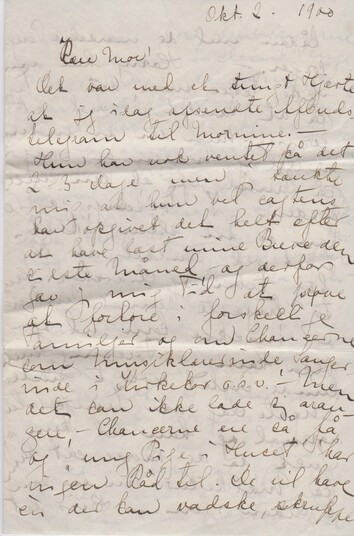 Okt. 2. 1900
Kære Mor!
Det var med et tungt Hjerte
at jeg idag afsendte Afbuds
telegram til Mornine. —
Hun har nok ventet på det
2 3 dage men I tænkte
mig at hun vel sagtens
har opgivet det helt efter
at have læst mine Breve den
sidste Måned, og derfor
gav I mig Tid at prøve
at forhøre i forskellige
Familjer og om Chancerne
som Musiklærerinde, Sanger
inde i Kirkekor o.s.v. — Men
det kan ikke lade sig arran
gere, — Chancerne ere så få
og ung Pige i Huset har
ingen Råd til. De vil have
en der kan vadske, skruppe